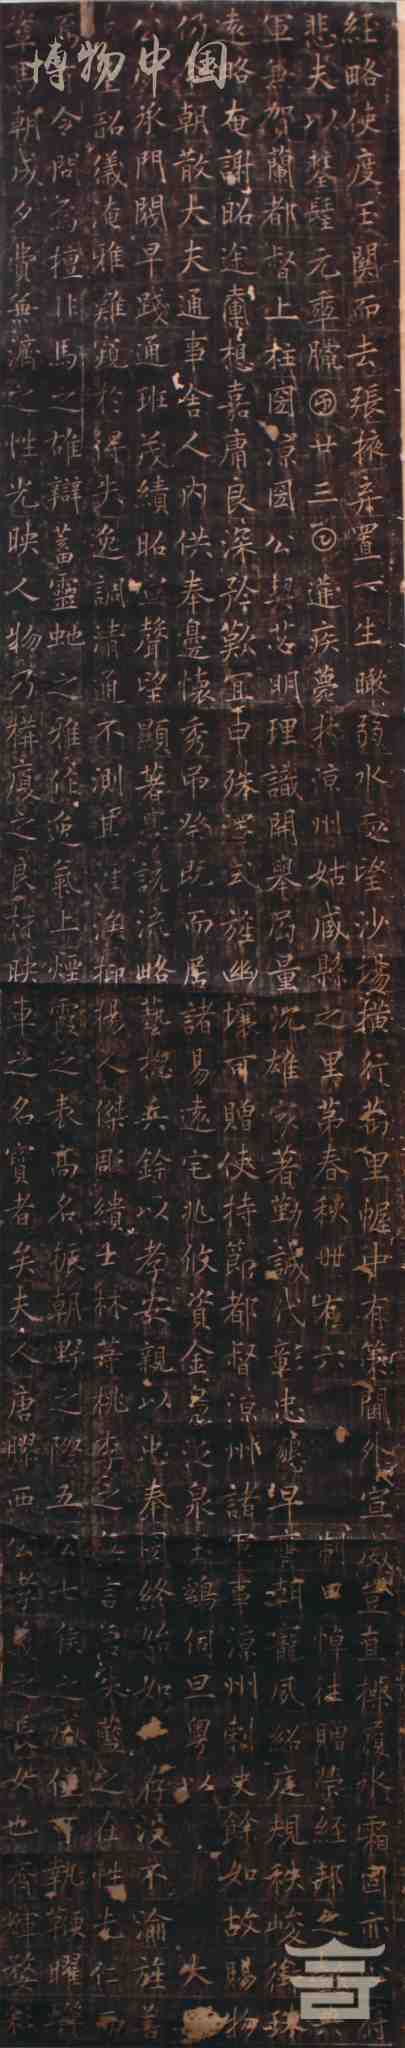 博物中国
經略使度玉關而去張掖棄置一生瞰弱水而望沙場橫行萬里幄中有策閫外宣威豈直操履水霜固亦心府
悲夫以 臘𡆠廿三𡆠遘疾薨於涼州姑臧縣之里第春秋卌有六 制曰悼往贈榮經邦之
軍兼賀蘭都督上柱圀涼圀公契苾明理識開舉局量沉雄夙著勤誠代彰忠懇早膺朝寵夙紹庭規秩峻
遠略奄謝昭途言想嘉庸良深矜歎宜申殊澤式旌幽壤可贈使持節都督涼州諸軍事涼州刺史餘如故賜物
仍 朝散大夫通事舍人內供奉邊懷秀弔祭既而居諸易遠宅兆攸資金 泉玉鷄伺旦粵以 大
公 承門閥早踐通班茂績昭宣聲望顯著 說流略藝總兵鈐以孝安親以忠奉圀終始如 存沒不渝旌善
韶儀淹雅雖窺於得失逸調清通不測其涯涘抑揚人傑彫繢士林等桃李之 言 夫藍之在性先仁而
令問焉擅非馬之雄辯蓄靈虵之雅作逸氣上煙霞之表高名振朝野之際五公七侯之 僅可執鞭曜
朝成夕費無滯之性光映人物乃構廈之良材映車之名寶者矣夫人唐膠西公孝義之長女也 輝婺彩